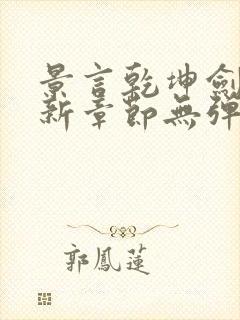 景言乾坤劍
新章節無彈
郭鳳蓮